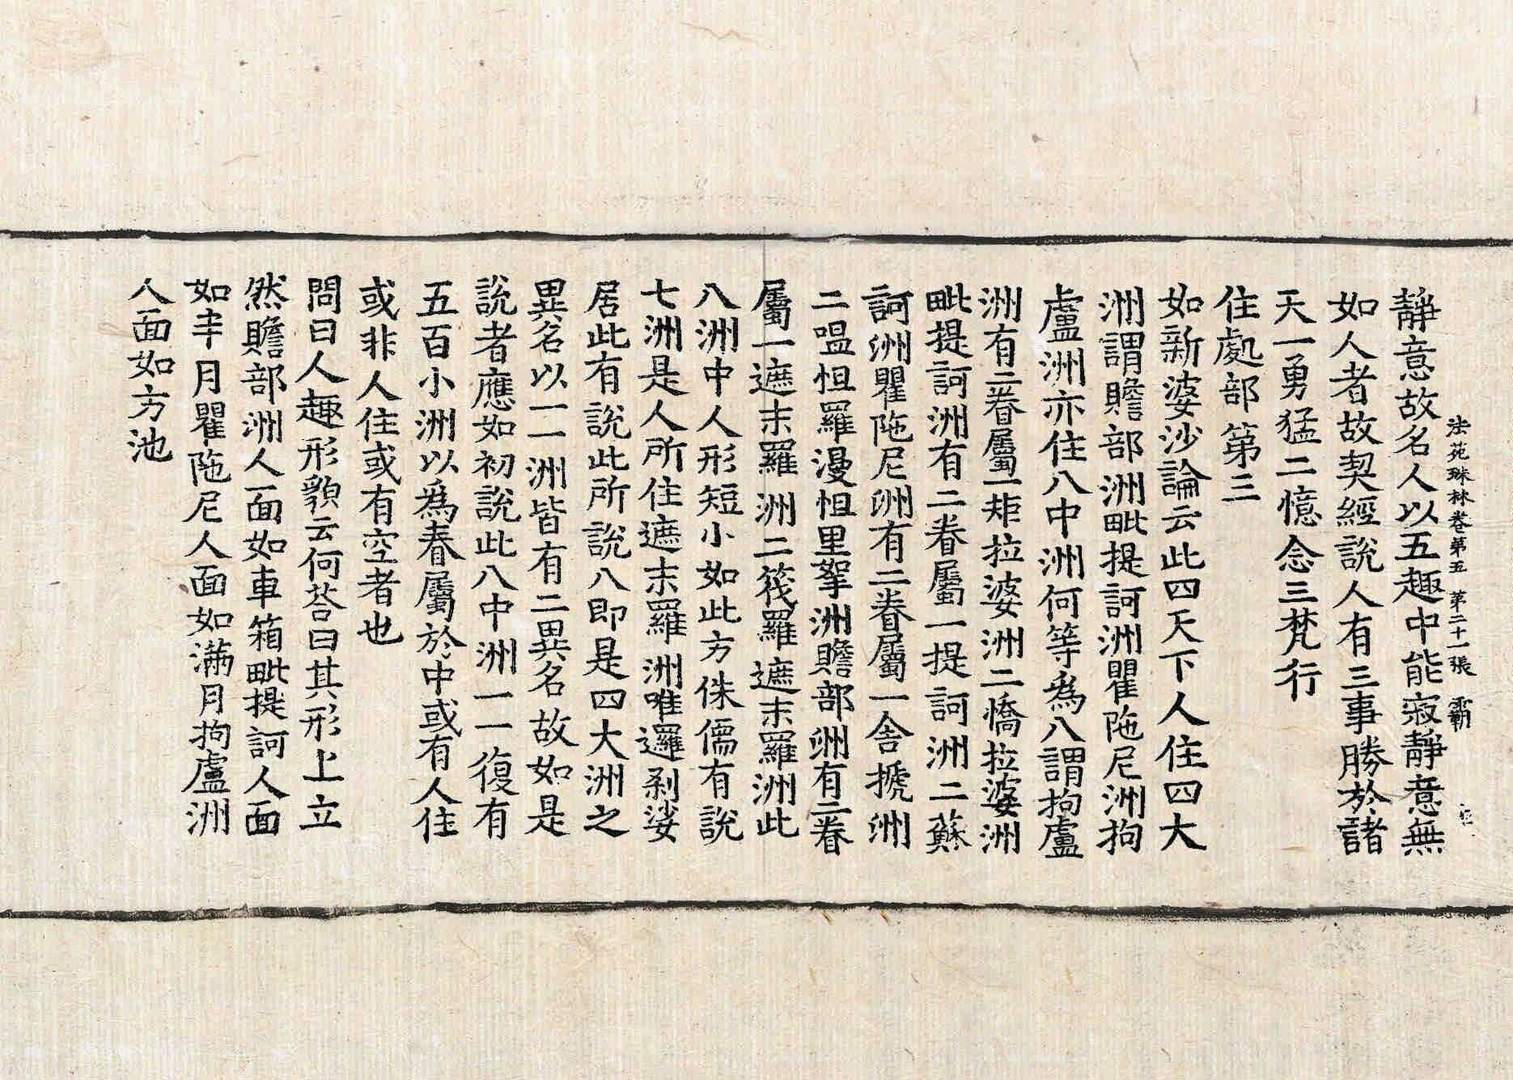 法苑珠林卷第五　第二十一張　霸
靜意故名人以五趣中能寂靜意無
如人者故契經說人有三事勝於諸
天一勇猛二憶念三梵行
住處部第三
如新婆沙論云此四天下人住四大
洲謂贍部洲毗提訶洲瞿陁尼洲拘
盧洲亦住八中洲何等爲八謂拘盧
洲有二眷屬一矩拉婆洲二憍拉婆洲
毗提訶洲有二眷屬一提訶洲二蘇
訶洲瞿陁尼洲有二眷屬一舍搋洲
二嗢怛羅漫怛里拏洲贍部洲有二眷
屬一遮末羅洲二筏羅遮末羅洲此
八洲中人形短小如此方侏儒有說
七洲是人所住遮末羅洲唯邏剎娑
居此有說此所說八即是四大洲之
異名以一一洲皆有二異名故如是
說者應如初說此八中洲一一復有
五百小洲以爲眷屬於中或有人住
或非人住或有空者也
問曰人趣形貌云何荅曰其形上立
然贍部洲人面如車箱毗提訶人面
如半月瞿陁尼人面如滿月拘盧洲
人面如方池